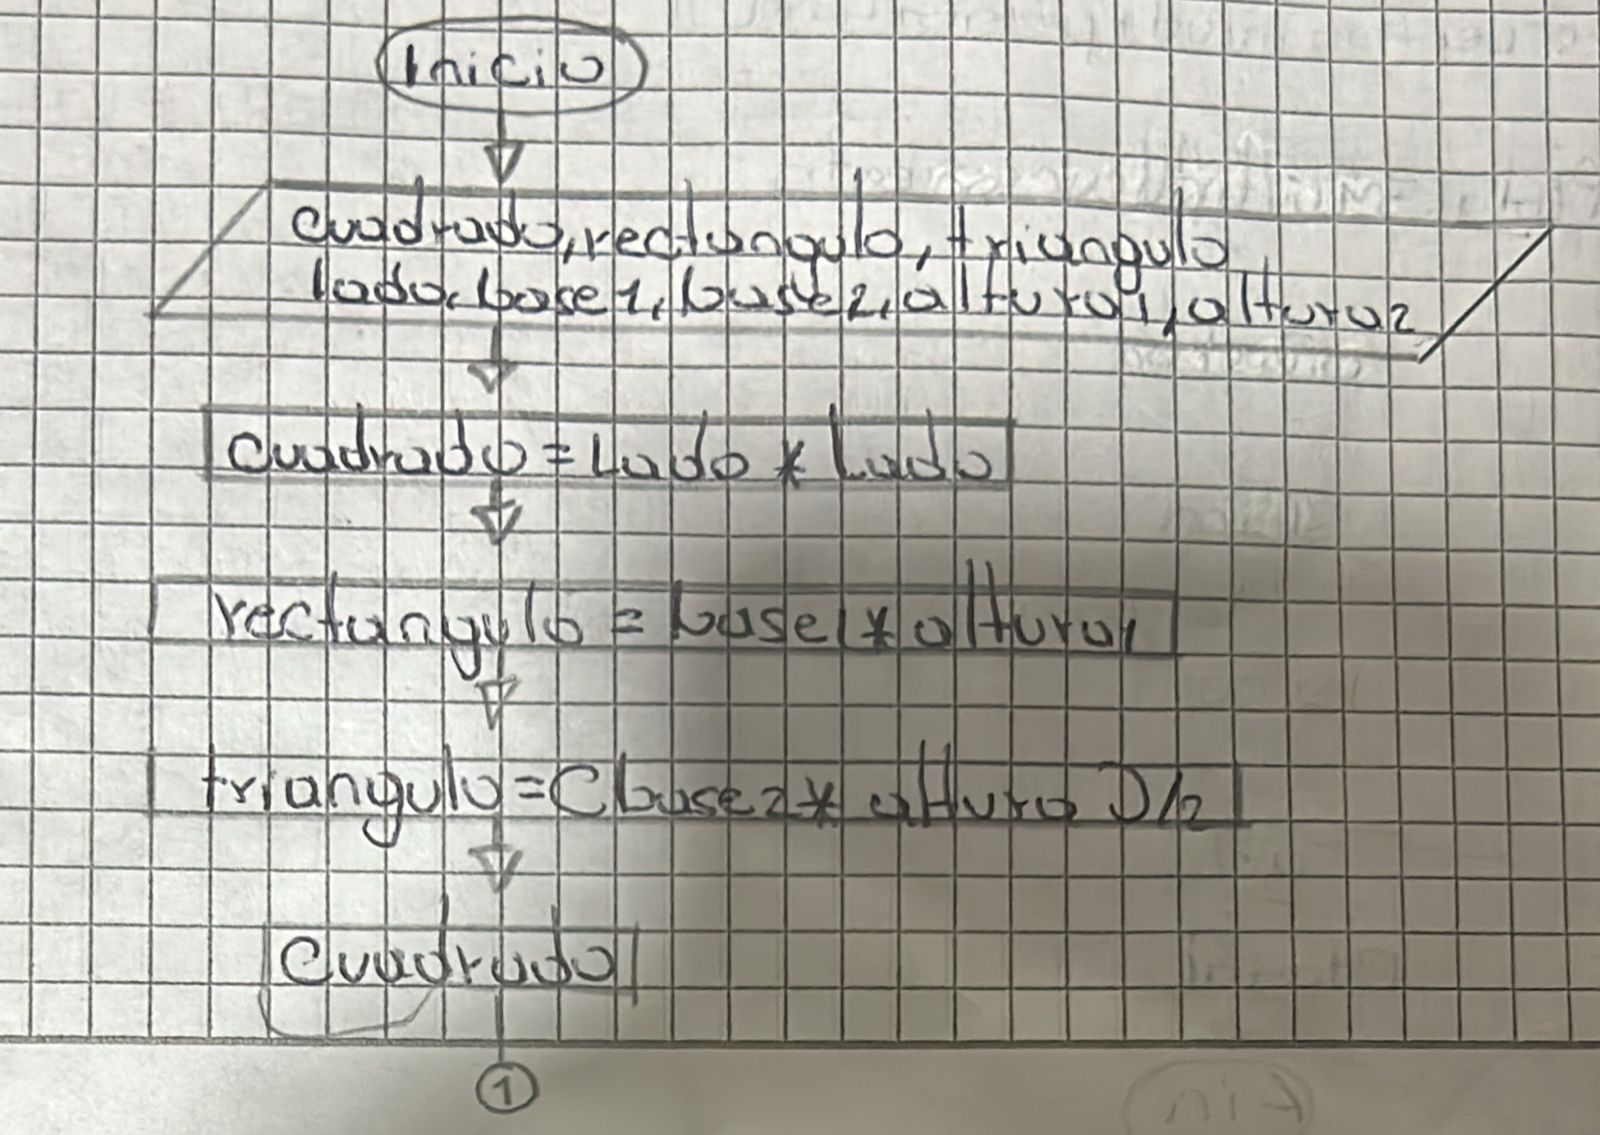 Inicio
cuadrado, rectangulo, triangulo,
lado, base1, base2, altura1, altura2
cuadrado = Lado * Lado
rectangulo = base1 * altura1
triangulo = (base2 * altura)/2
Cuadrado
1
Fin